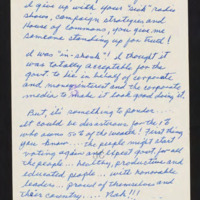 give up with your "sick" radio
shows, campaign strategies and
House of Commons, you give me
someone standing up for truth!
I was "in-shock"! I thought it
was totally acceptable for the
gov't to lie on behalf of corporate
and and the corporate
media to make it look good doing it.
But, it's something to ponder...
it could be disastrous for the 1%
who owns % of the wealth! First thing
you know... the people might start
voting again and expect good for all
the people... healthy, productive and
educated people... with honorable
leaders... proud of themselves and
their country..... Nah!!!